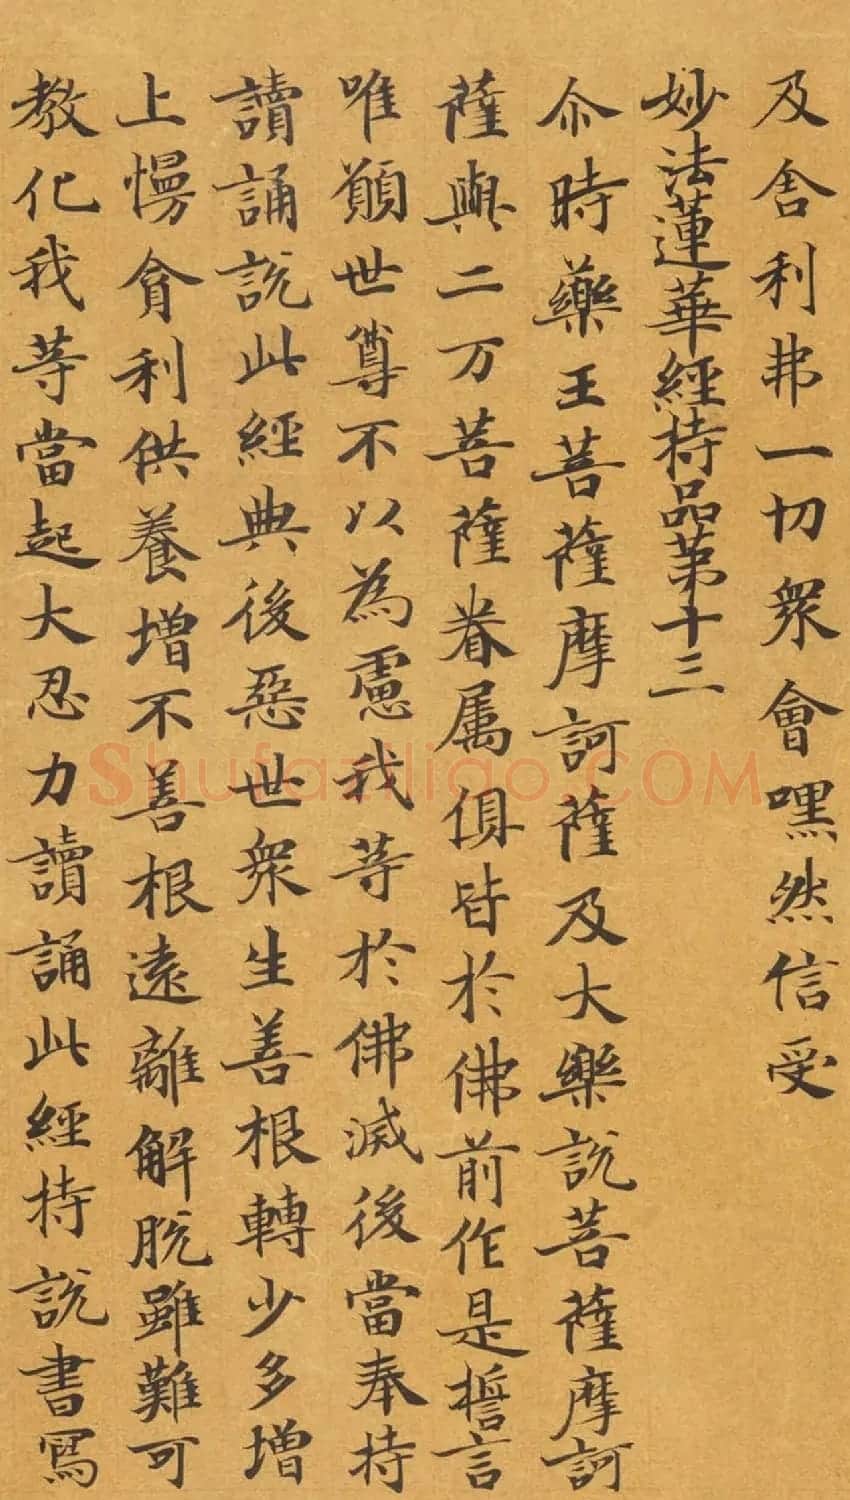 及舍利弗一切衆會嘿然信受
妙法蓮華經持品第十三
尒時藥王菩薩摩訶薩及大樂說菩薩摩訶
薩與二万菩薩眷属俱皆於佛前作是誓言
唯願世尊不以為慮我等於佛滅後當奉持
讀誦說此經典後惡世衆生善根轉少多增
上慢貪利供養增不善根遠離解脫雖難可
教化我等當起大忍力讀誦此經持說書寫
Shufaziliao.COM